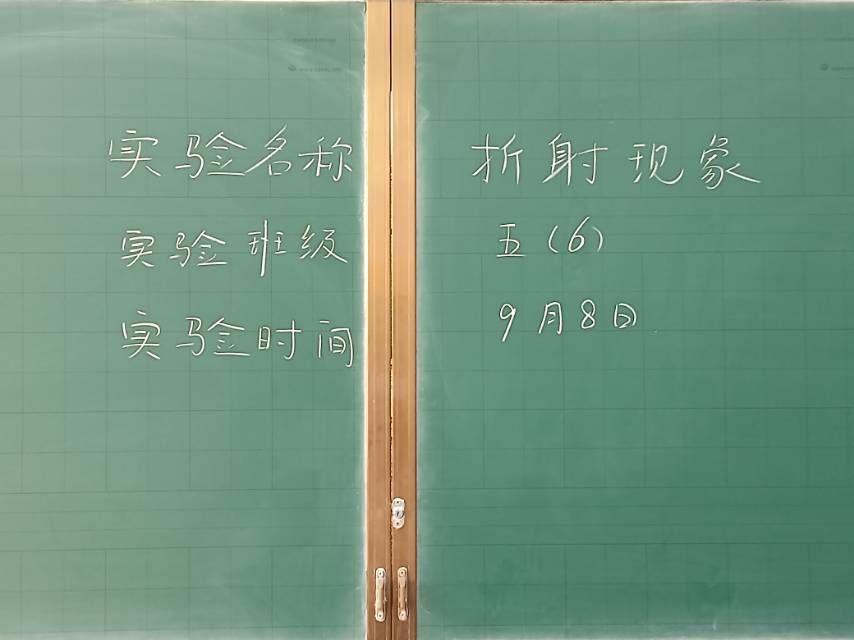 实验名称 折射现象
实验班级 五(6)
实验时间 9月8日